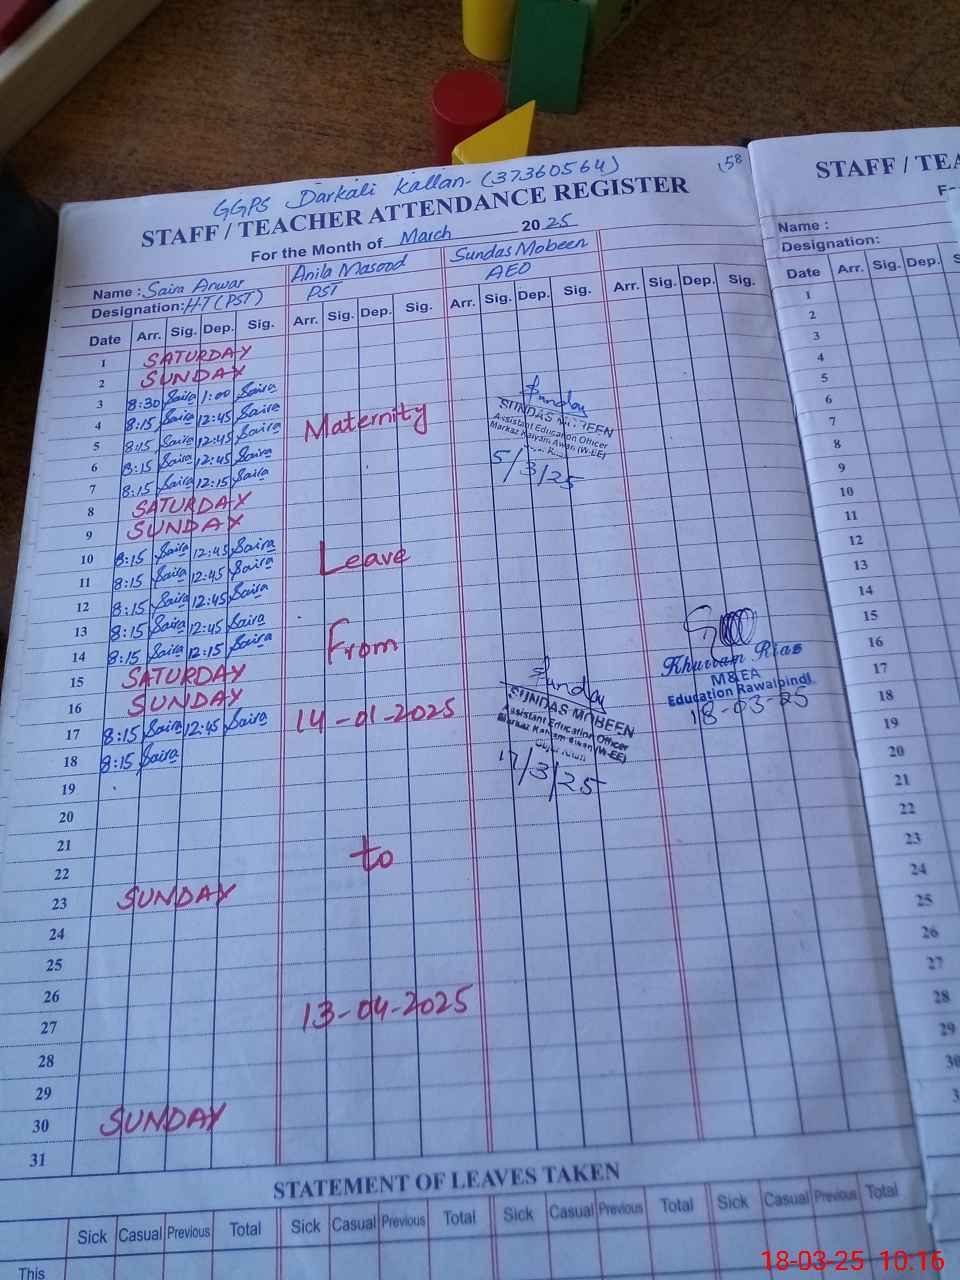 58
GGPS Darkali Kallan - (37360564)
STAFF / TEACHER ATTENDANCE REGISTER
For the Month of March 2025
Name : Saira Anwar Anila Masood Sundas Mobeen
Designation: HT (PST) PST AEO
Date Arr. Sig. Dep. Sig. Arr. Sig. Dep. Sig. Arr. Sig. Dep. Sig. Arr. Sig. Dep. Sig.
1 SATURDAY
2 SUNDAY
3 8:30 Saira 1:00 Saira
4 8:15 Saira 12:45 Saira
5 8:15 Saira 12:45 Saira
6 8:15 Saira 12:45 Saira
7 8:15 Saira 12:15 Saira
8 SATURDAY
9 SUNDAY
10 8:15 Saira 12:45 Saira
11 8:15 Saira 12:45 Saira
12 8:15 Saira 12:45 Saira
13 8:15 Saira 12:45 Saira
14 8:15 Saira 12:15 Saira
15 SATURDAY
16 SUNDAY
17 8:15 Saira 12:45 Saira
18 8:15 Saira
19
20
21
22
23 SUNDAY
24
25
26
27
28
29
30 SUNDAY
31
Maternity
Leave
From
14-01-2025
to
13-04-2025
Sunday
SUNDAS MOBEEN
Assistant Education Officer
Markaz Kaiyam Awan (W-EE)
5/3/25
Sunday
SUNDAS MOBEEN
Assistant Education Officer
Markaz Kaiyam Awan (W-EE)
17/3/25
Khurram Riaz
M&EA
Education Rawalpindi
18-03-25
STATEMENT OF LEAVES TAKEN
Sick Casual Previous Total Sick Casual Previous Total Sick Casual Previous Total Sick Casual Previous Total
This
STAFF / TEA
F
Name :
Designation:
Date Arr. Sig. Dep. S
1
2
3
4
5
6
7
8
9
10
11
12
13
14
15
16
17
18
19
20
21
22
23
24
25
26
27
28
29
30
3
18-03-25 10:16